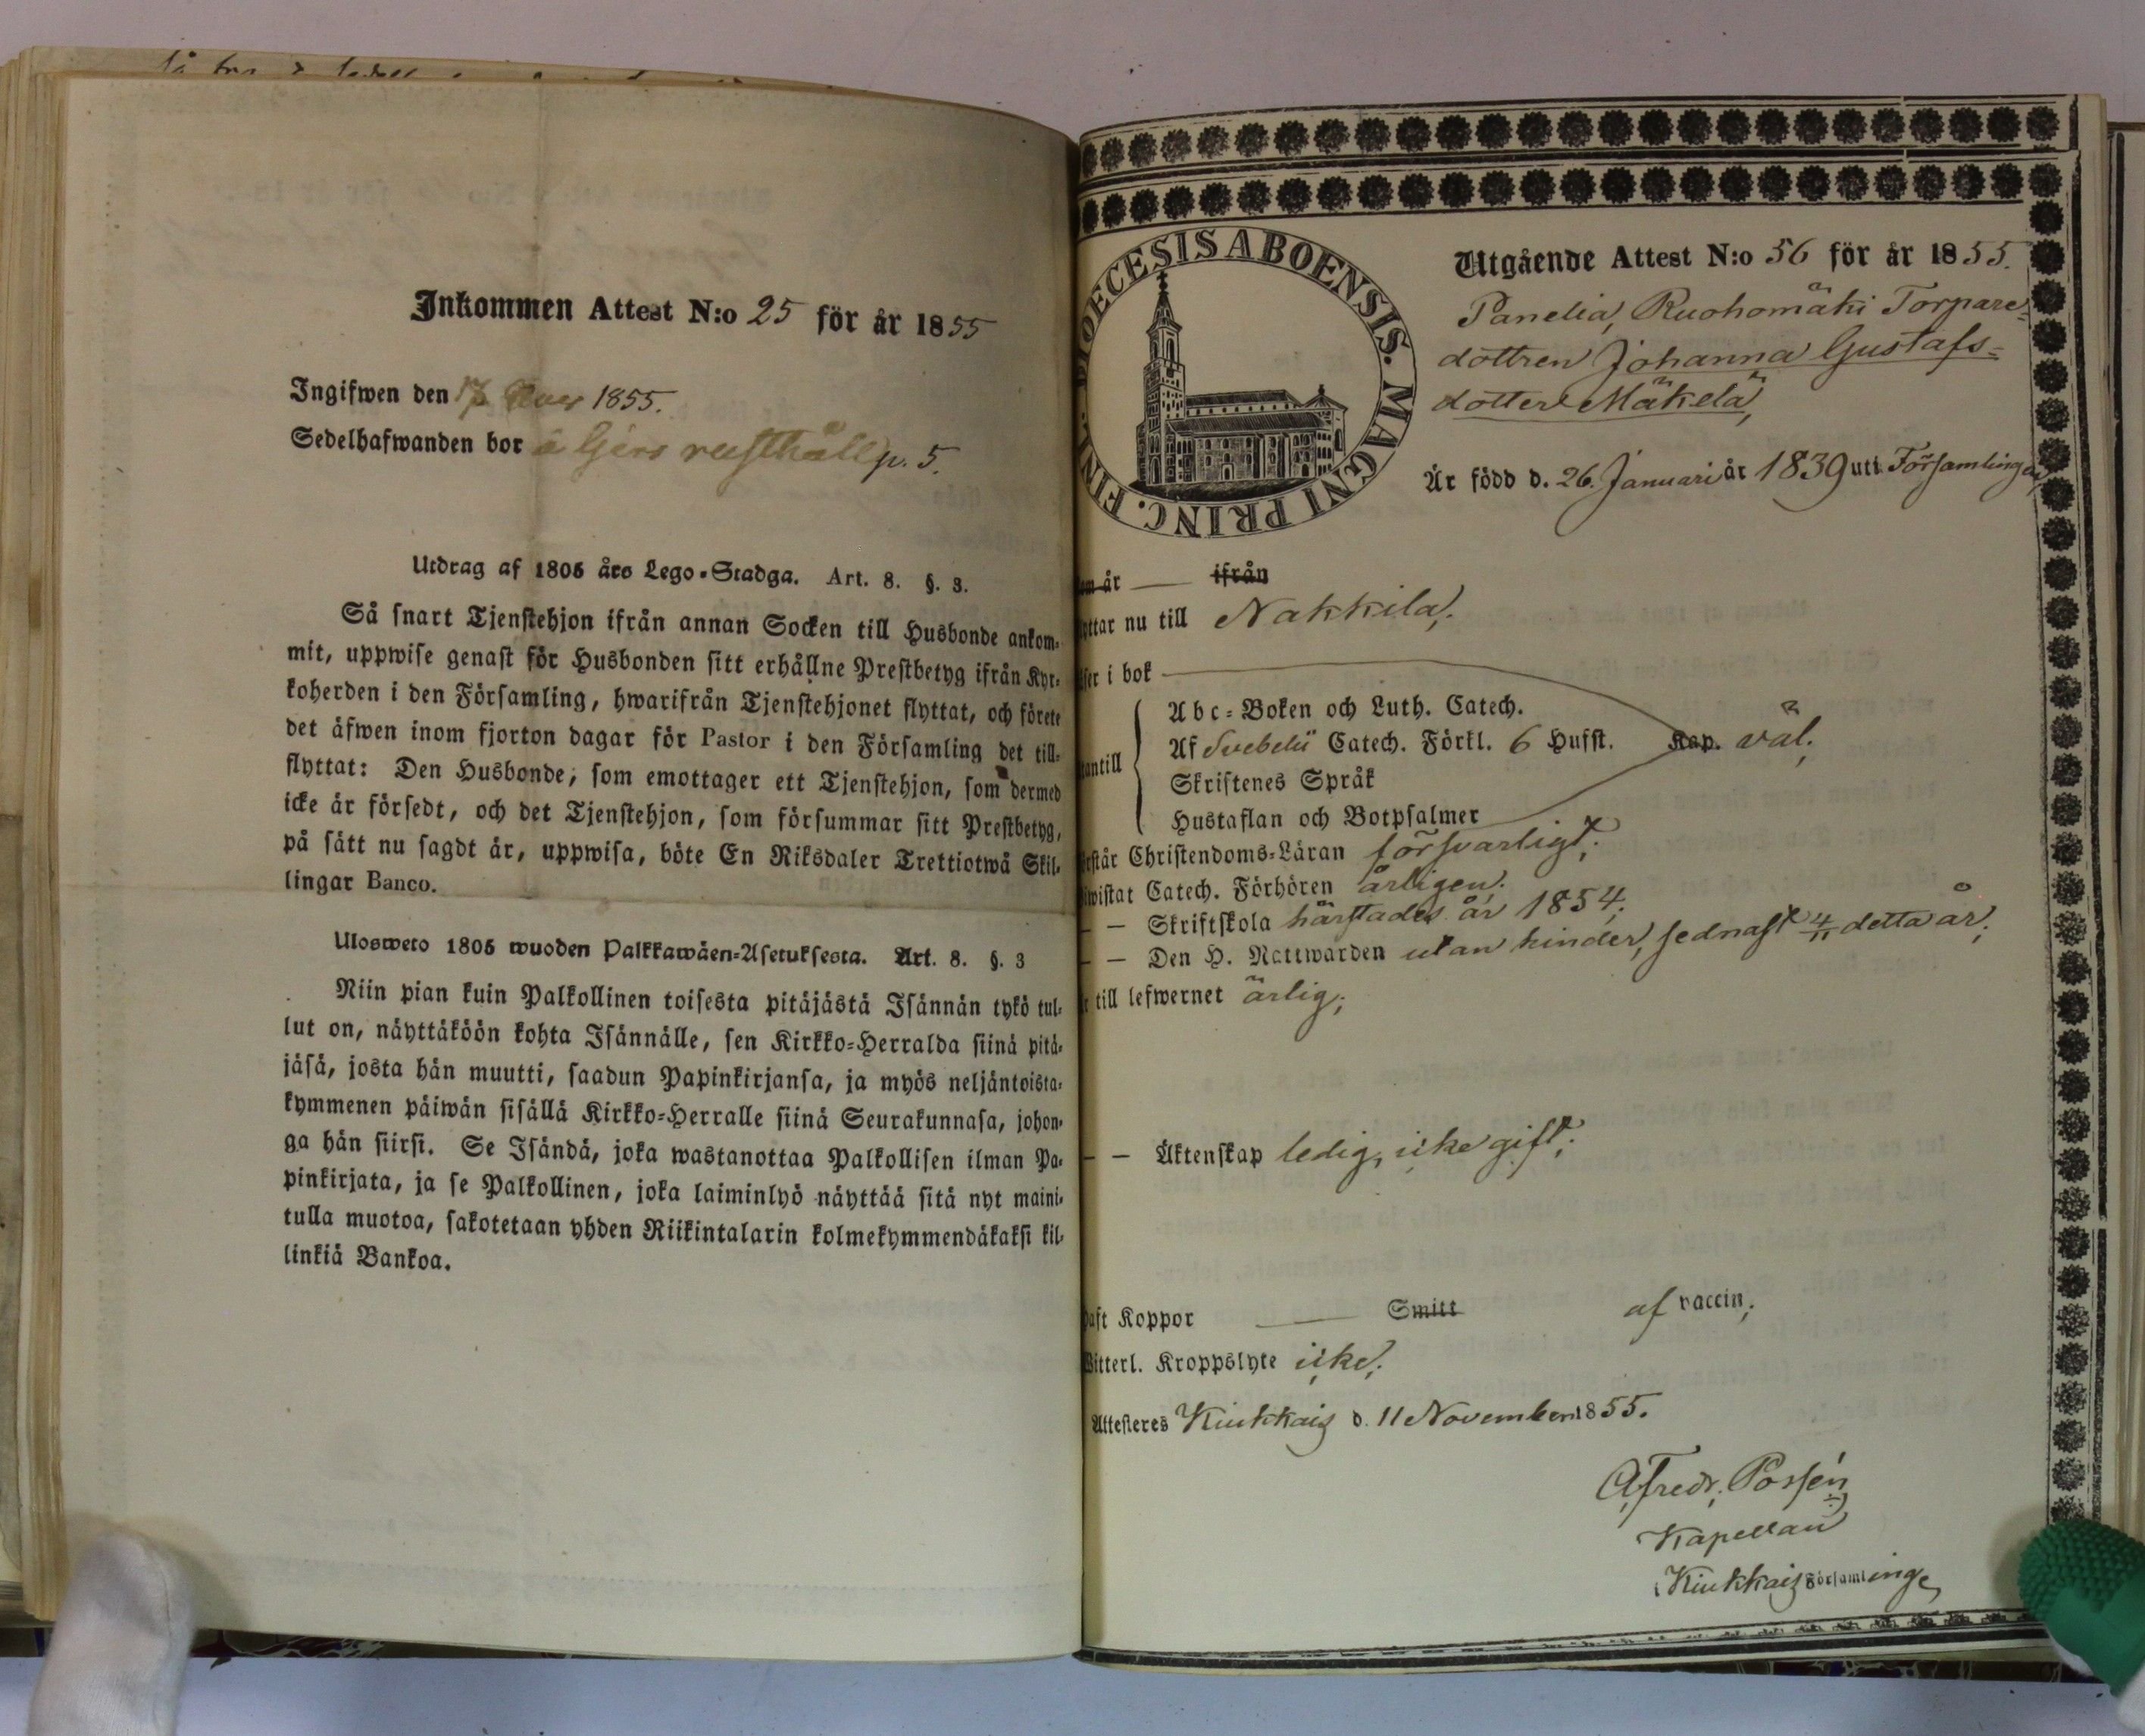 Inkommen Attest N:o 25 för år 1855
Ingifwen den 17 Nov 1855.
Sedelhafwanden bor å Gers rusthåll p. 5.
Utdrag af 1805 års Lego-Stadga. Art. 8. §. 3.
Så snart Tjenstehjon ifrån annan Socken till Husbonde ankom-
mit, uppwise genast för Husbonden sitt erhållne Prestbetyg ifrån Kyr-
koherden i den Församling, hwarifrån Tjenstehjonet flyttat, och förete
det äfwen inom fjorton dagar för Pastor i den Församling det till-
flyttat: Den Husbonde, som emottager ett Tjenstehjon, som dermed
icke är försedt, och det Tjenstehjon, som försummar sitt Prestbetyg,
på sätt nu sagdt är, uppwisa, böte En Riksdaler Trettiotwå Skil-
lingar Banco.
Ulosweto 1805 wuoden Palkkawäen-Asetuksesta. Art. 8. §. 3
Niin pian kuin Palkollinen toisesta pitäjästä Isännän tykö tul-
lut on, näyttäköön kohta Isännälle, sen Kirkko-Herralda siinä pitä-
jäsä, josta hän muutti, saadun Papinkirjansa, ja myös neljäntoista-
kymmenen päiwän sisällä Kirkko-Herralle siinä Seurakunnasa, johon-
ga hän siirsi. Se Isändä, joka wastanottaa Palkollisen ilman Pa-
pinkirjata, ja se Palkollinen, joka laiminlyö näyttää sitä nyt maini-
tulla muotoa, sakotetaan yhden Riikintalarin kolmekymmendäkaksi kil-
linkiä Bankoa.
DIOECESIS ABOENSIS. MAGNI PRINC. FINL.
Utgående Attest N:o 56 för år 1855.
Panelia, Ruohomäki Torpare-
dottren Johanna Gustafs-
dotter Mäkelä,
Är född d. 26. Januari år 1839 uti Församlingen,
om år — ifrån
yttar nu till Nakkila,.
äser i bok
Abc-Boken och Luth. Catech.
antill Af Svebelii Catech. Förkl. 6 Hufst. Kap. väl;
Skriftenes Språk
Hustaflan och Botpsalmer
örstår Christendoms-Läran försvarligt;
iwistat Catech. Förhören årligen;
— — Skriftskola härstädes år 1854;
— — Den H. Nattwarden utan hinder, sednast 4/11 detta år;
r till lefwernet ärlig;
— — Äktenskap ledig, icke gift;
aft Koppor — Smitt af vaccin;
Witterl. Kroppslyte icke;
Attesteres Kiukkais d. 11 November 1855.
A,fredr, Possén
Kapellan
i Kiukkais Församlinge